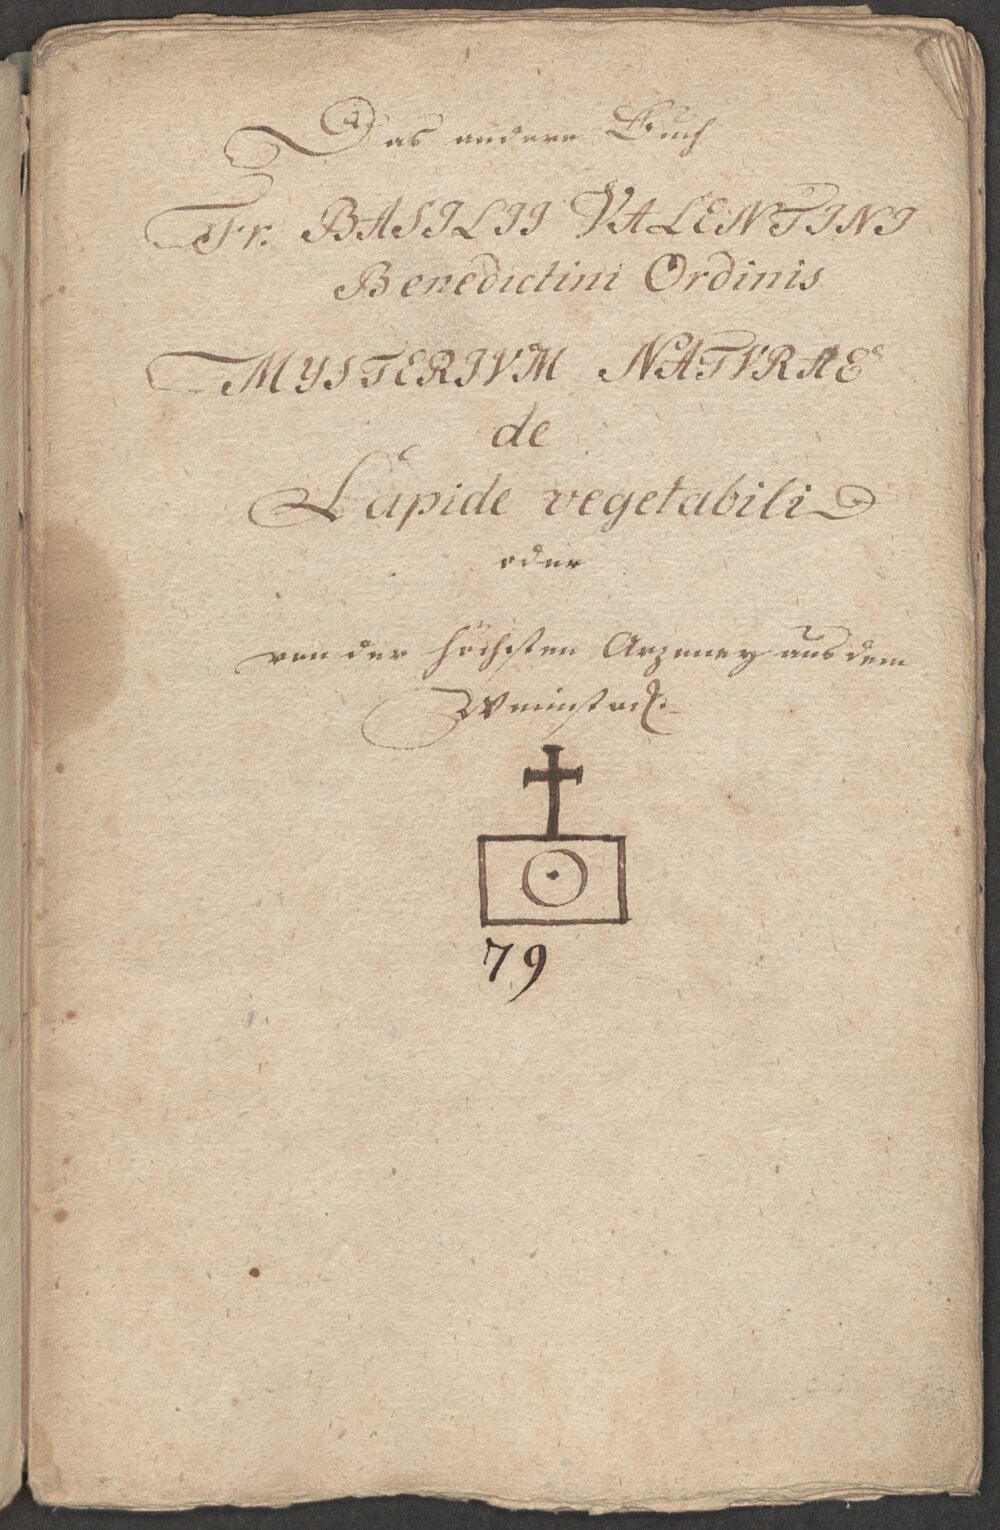 Das andere Buch
Fr. BASILII VALENTINI
Benedictini Ordinis
MYSTERIVM NATVRAE
de
Lapide vegetabili
oder
von der höchsten Arzeney aus dem
Weinstock.
79